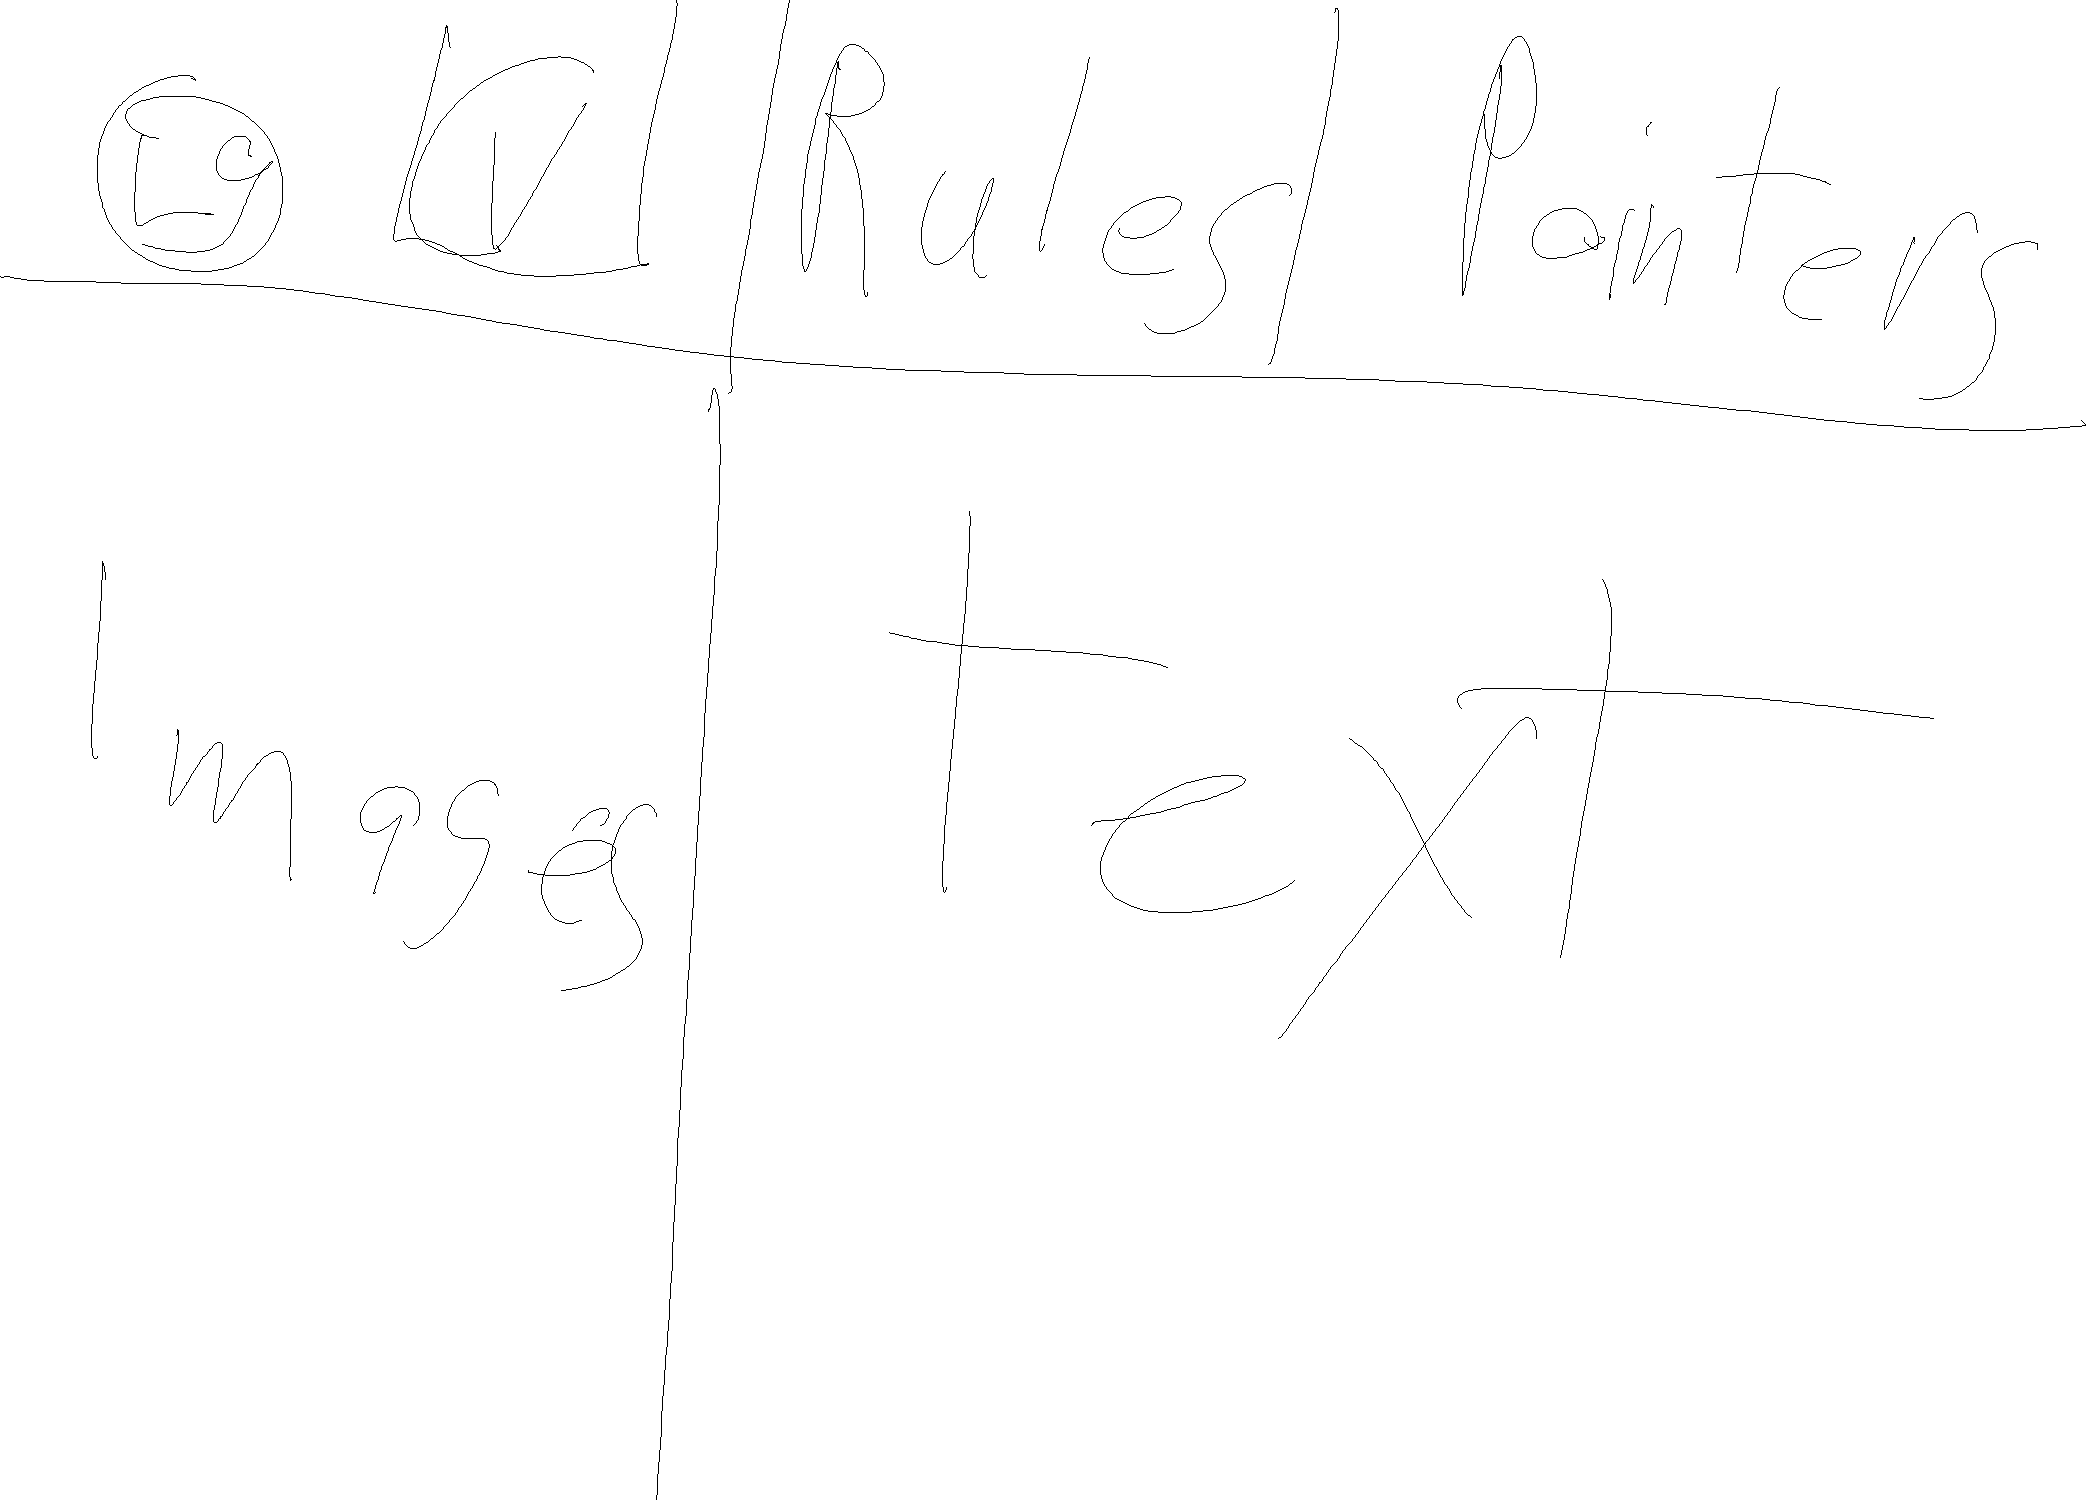 Rules Pointers
Images text